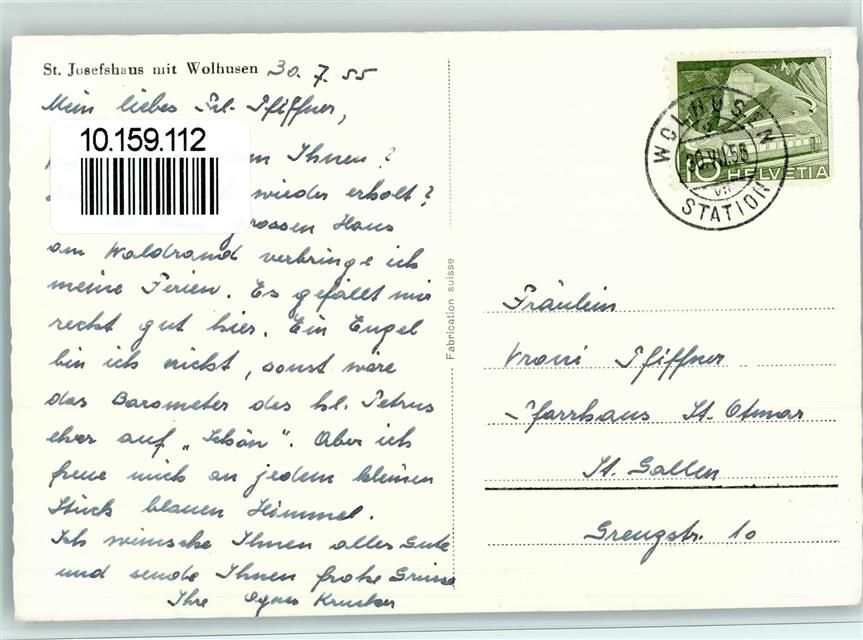 St. Josefshaus mit Wolhusen 30. 7. 55
Mein liebes Frl. Pfiffner,
10.159.112
Ihnen?
wieder erholt?
grossen Haus
am Waldrand verbringe ich
meine Ferien. Es gefällt mir
recht gut hier. Ein Engel
bin ich nicht, sonst wäre
das Barometer des hl. Petrus
eher auf „Schön". Aber ich
freue mich an jedem kleinen
Stück blauen Himmel.
Ich wünsche Ihnen alles Gute
und sende Ihnen frohe Grüsse
Ihre Agnes Krucker
Fabrication suisse
WOLHUSEN
STATION
10 HELVETIA
Fräulein
Vroni Pfiffner
Pfarrhaus St. Otmar
St. Gallen
Grenzstr. 10